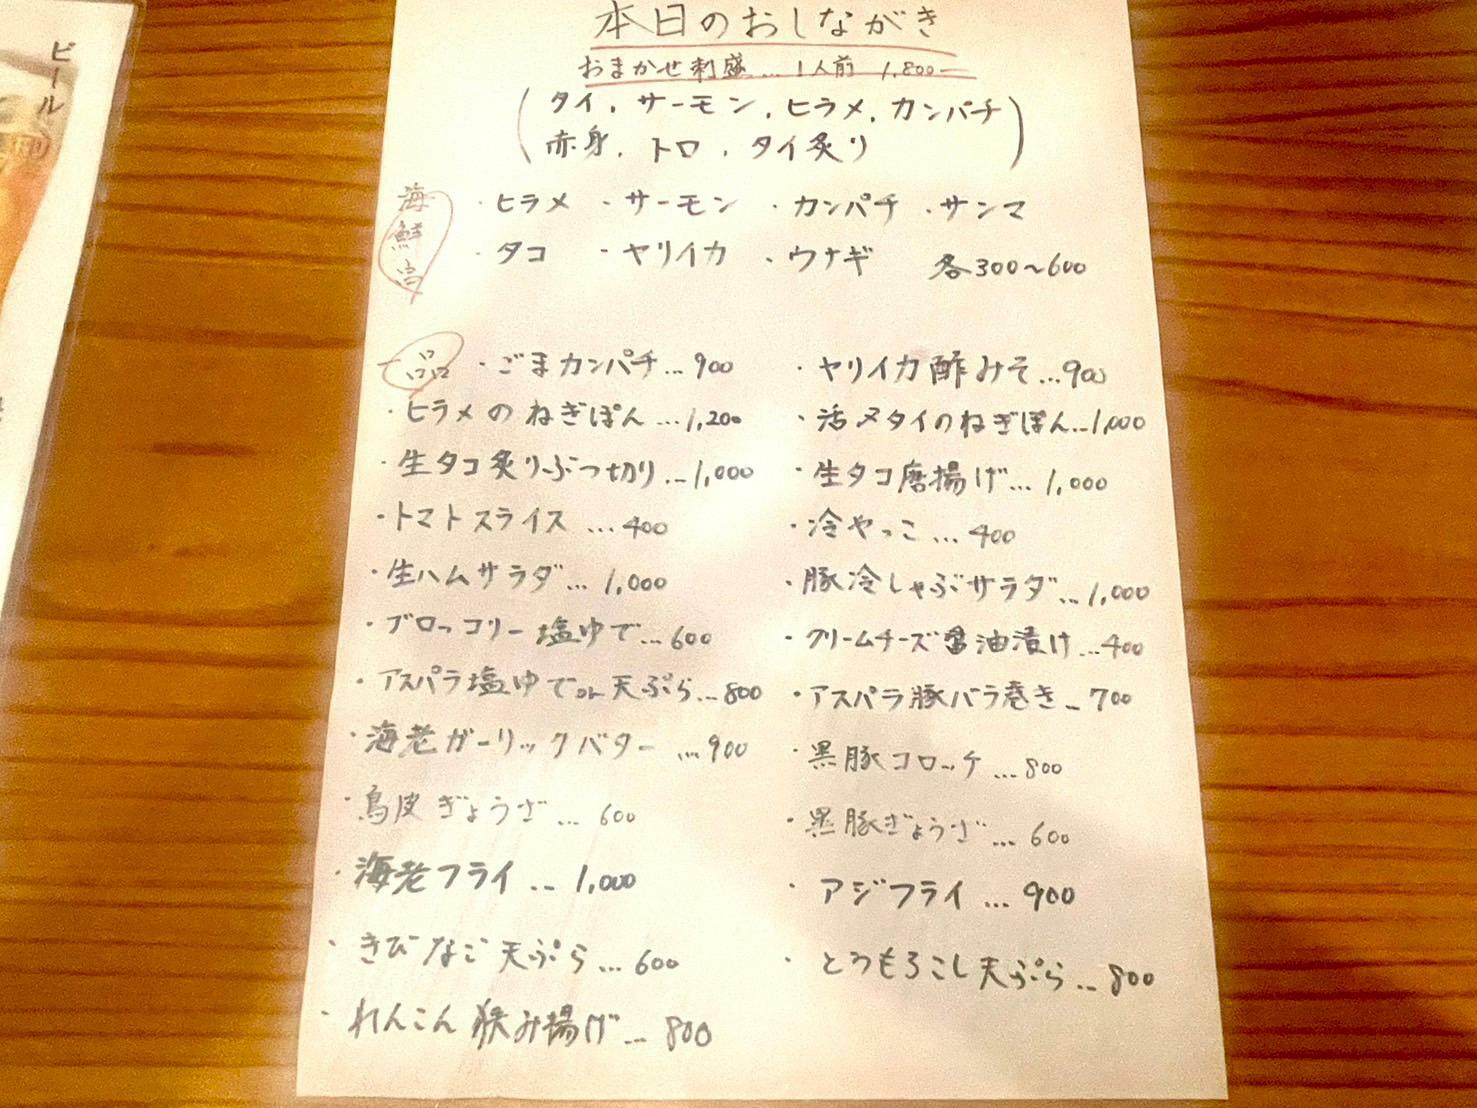 本日のおしながき
おまかせ刺盛…1人前 1,800ー
(タイ,サーモン,ヒラメ,カンパチ
赤身,トロ,タイ炙り)
海鮮
・ヒラメ ・サーモン ・カンパチ ・サンマ
・タコ ・ヤリイカ ・ウナギ 各300〜600
一品
・ごまカンパチ…900
・ヤリイカ酢みそ…900
・ヒラメのねぎぽん…1,200
・活〆タイのねぎぽん…1,000
・生タコ炙りぶつ切り…1,000
・生タコ唐揚げ…1,000
・トマトスライス…400
・冷やっこ…400
・生ハムサラダ…1,000
・豚冷しゃぶサラダ…1,000
・ブロッコリー塩ゆで…600
・クリームチーズ醤油漬け…400
・アスパラ塩ゆでor天ぷら…800
・アスパラ豚バラ巻き…700
・海老ガーリックバター…900
・黒豚コロッケ…800
・鳥皮ぎょうざ…600
・黒豚ぎょうざ…600
・海老フライ…1,000
・アジフライ…900
・きびなご天ぷら…600
・とうもろこし天ぷら…800
・れんこん挟み揚げ…800
ビール